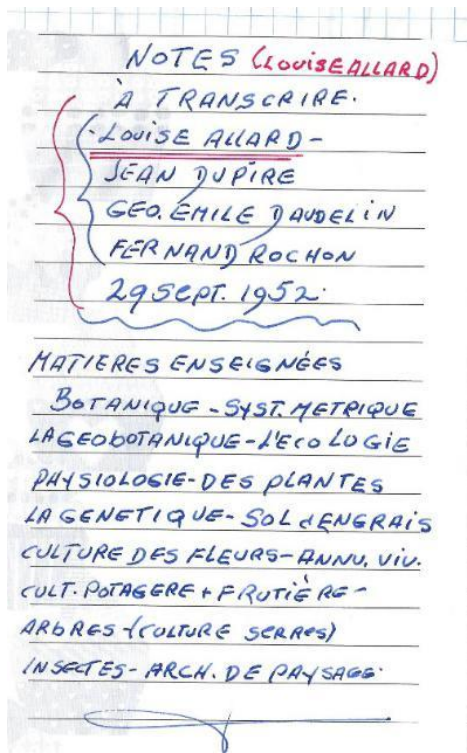 NOTES (LOUISE ALLARD)
À TRANSCRIRE.
-LOUISE ALLARD-
JEAN DUPIRE
GEO. ÉMILE DAUDELIN
FERNAND ROCHON
29 SEPT. 1952.
MATIERES ENSEIGNÉES
BOTANIQUE - SYST. METRIQUE
LA GEOBOTANIQUE - L'ECOLOGIE
PAYSIOLOGIE - DES PLANTES
LA GENETIQUE - SOL & ENGRAIS
CULTURE DES FLEURS - ANNU. VIV.
CULT. POTAGERE + FRUTIÈRE -
ARBRES + (CULTURE SERRES)
INSECTES - ARCH. DE PAYSAGE.